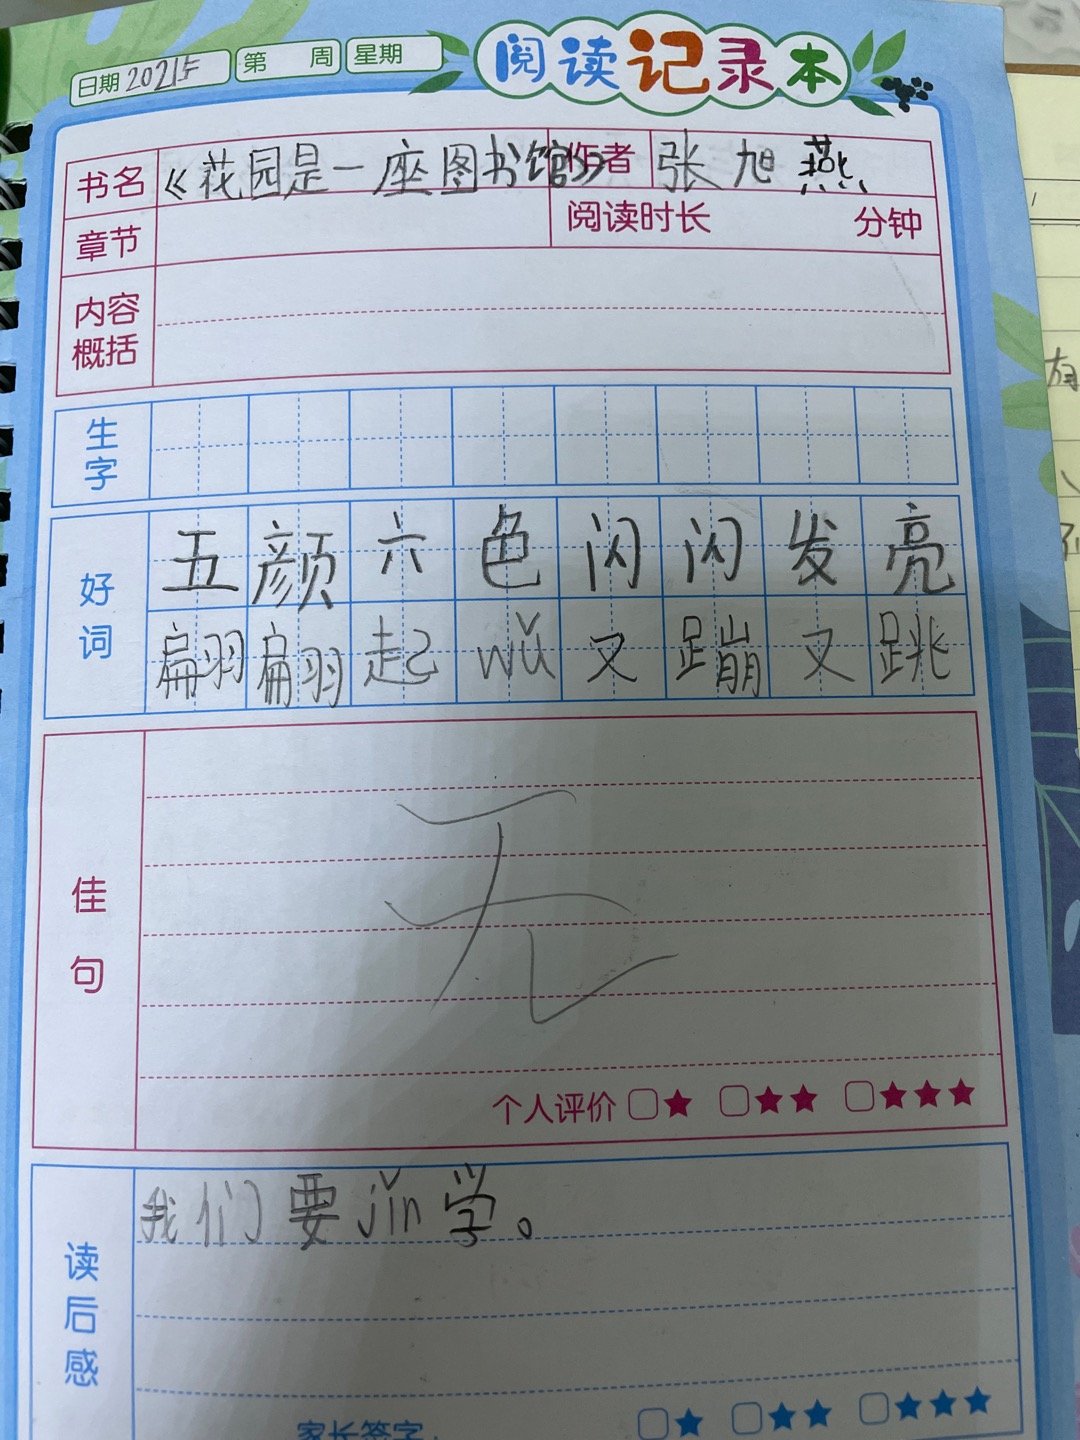 日期 2021年 第 周 星期 阅读记录本
书名 《花园是一座图书馆》 作者 张旭燕
章节 阅读时长 分钟
内容概括
生字
好词 五颜六色闪闪发亮
翩翩起wǔ又蹦又跳
佳句 无
个人评价 ★ ★★ ★★★
读后感 我们要jǐn学。
家长签字: ★ ★★ ★★★